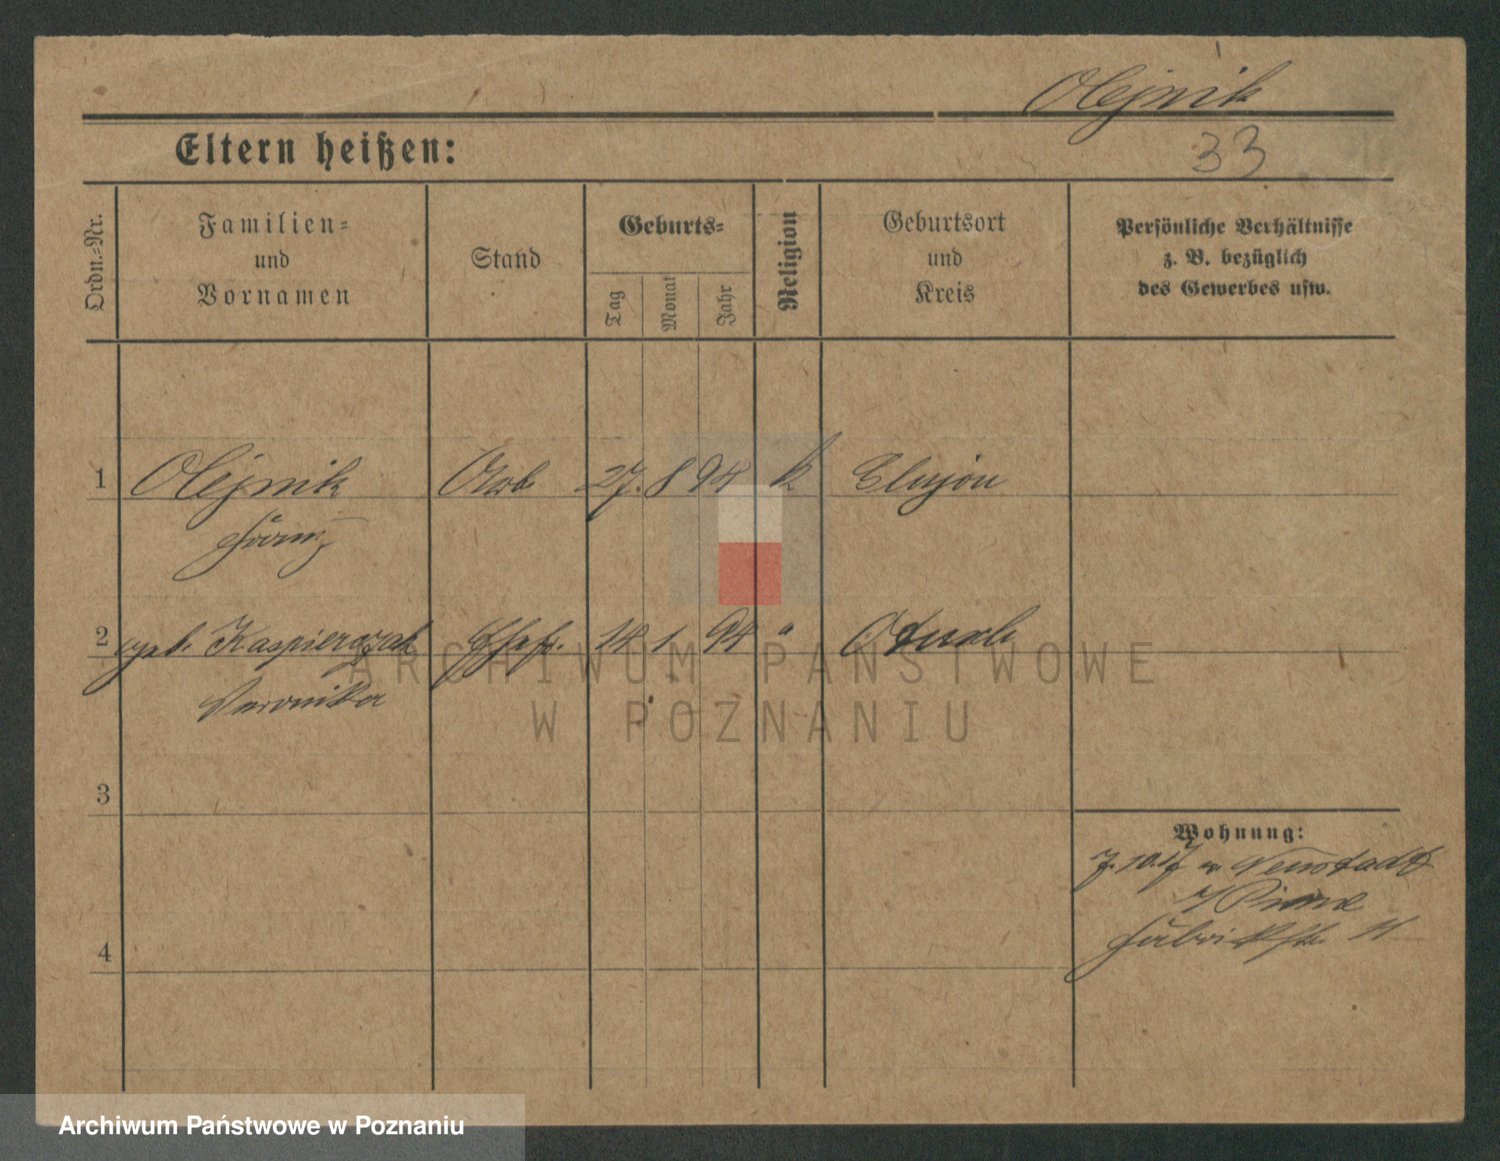 Olejnik
33
Eltern heißen:
Ordn.-Nr.
Familien-
und
Vornamen
Stand
Geburts-
Tag
Monat
Jahr
Religion
Geburtsort
und
Kreis
Persönliche Verhältnisse
z. B. bezüglich
des Gewerbes usw.
1 Olejnik Arb 27. 8 94 k
Franz
2 geb. Kasprerczak Ehefr. 14 1 94 "
Veronika
3
4
Wohnung:
Neustadt
Pinne
Fabrikstr. 11
ARCHIWUM PAŃSTWOWE
W POZNANIU
Archiwum Państwowe w Poznaniu